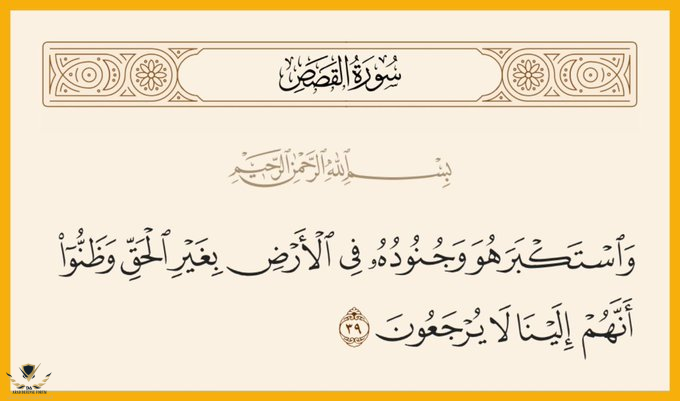 سُورَةُ القَصَصِ
بِسْمِ اللَّهِ الرَّحْمَٰنِ الرَّحِيمِ
وَٱسْتَكْبَرَ هُوَ وَجُنُودُهُۥ فِى ٱلْأَرْضِ بِغَيْرِ ٱلْحَقِّ وَظَنُّوٓا۟
أَنَّهُمْ إِلَيْنَا لَا يُرْجَعُونَ ٣٩